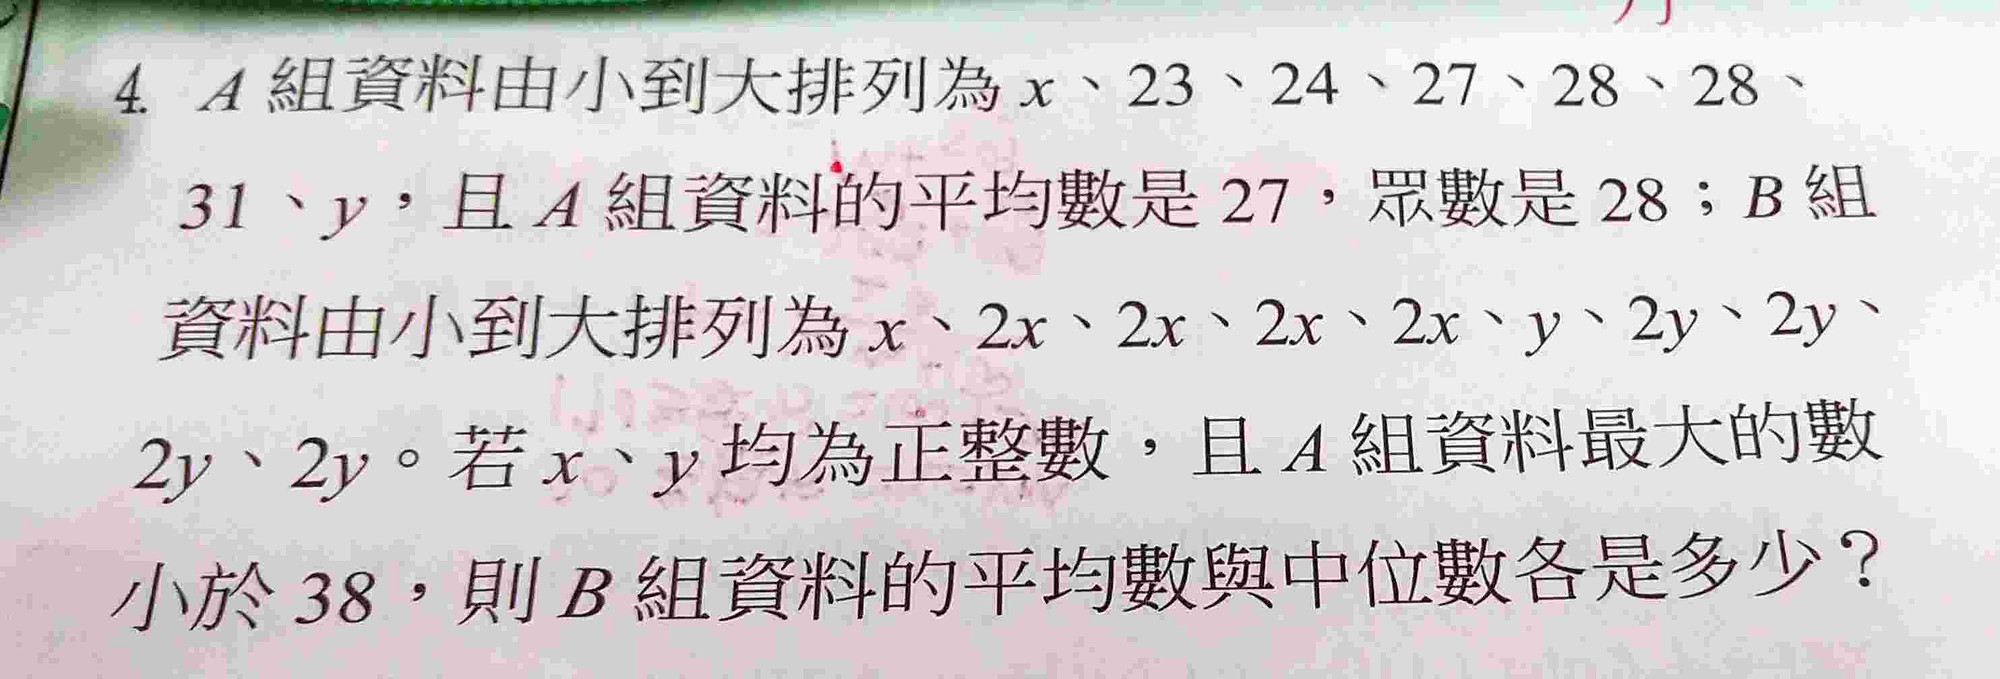 4. A 組資料由小到大排列為 x、23、24、27、28、28、
31、y，且 A 組資料的平均數是 27，眾數是 28；B 組
資料由小到大排列為 x、2x、2x、2x、2x、y、2y、2y、
2y、2y。若 x、y 均為正整數，且 A 組資料最大的數
小於 38，則 B 組資料的平均數與中位數各是多少？